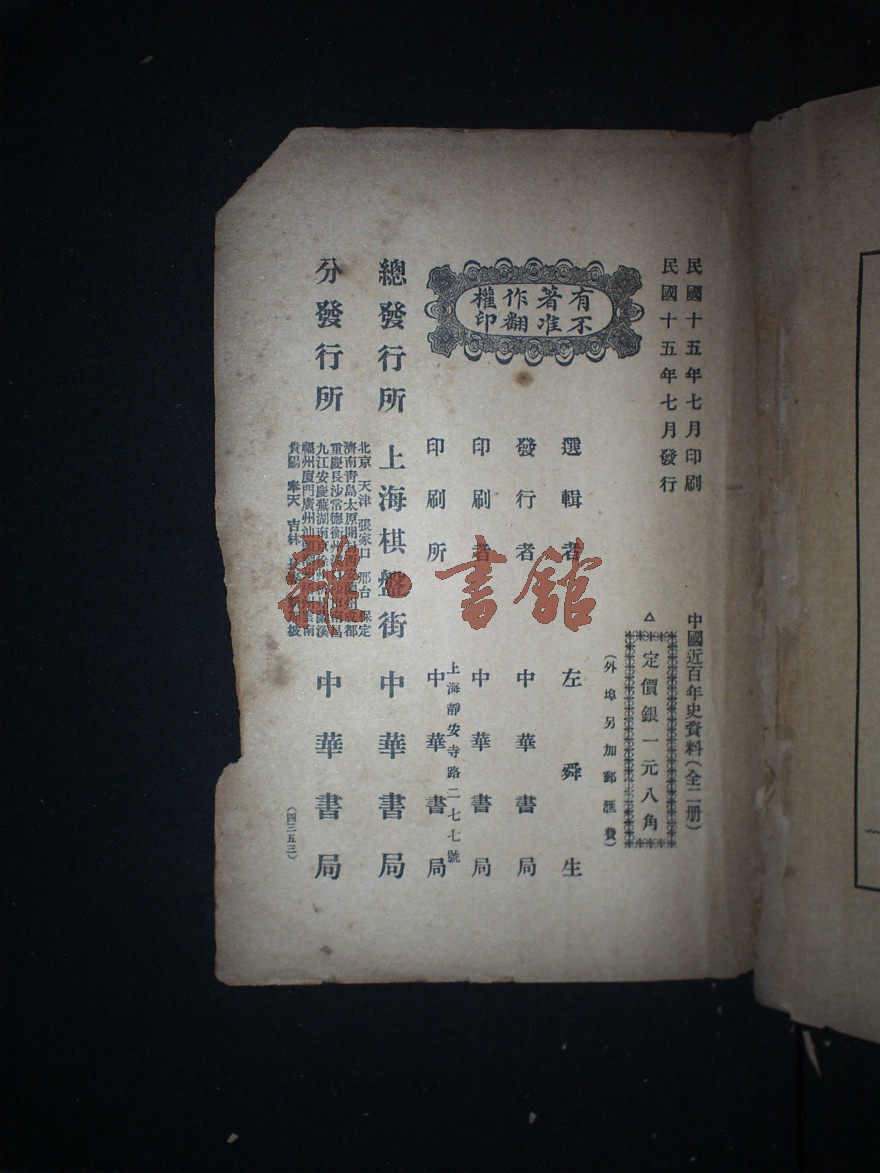 民國十五年七月印刷
民國十五年七月發行
中國近百年史資料(全二册)
定價銀一元八角
(外埠另加郵匯費)
有著作權
不准翻印
選輯者 左舜生
發行者 中華書局
印刷者 中華書局
上海靜安寺路二七七號
印刷所 中華書局
總發行所 上海棋盤街 中華書局
分發行所 中華書局
北京 天津 張家口 邢台 保定
濟南青島太原開封 成都
重慶長沙常德衡州 南昌
九江安慶蕪湖南京
福州廈門廣州汕頭 雲南
貴陽 奉天 吉林
(四三五三)
書館